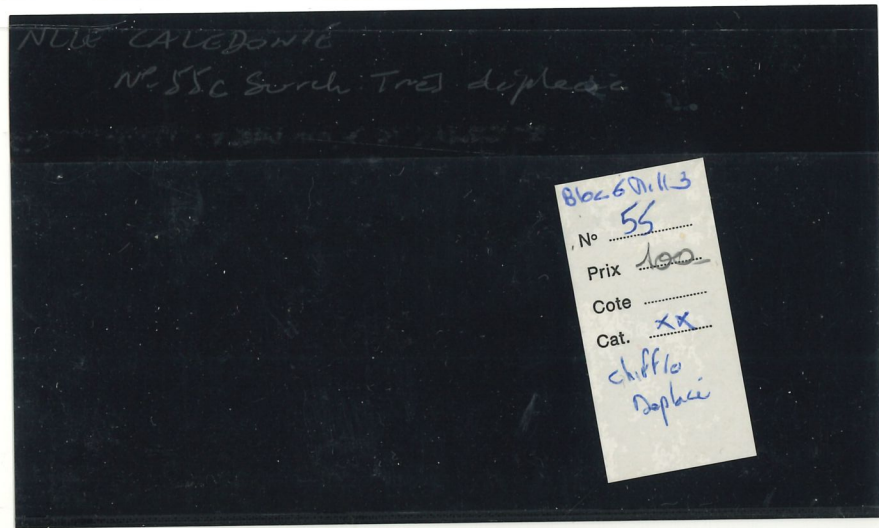 NLLE CALEDONIE
No 55c Surch Très déplacée
Bloc 6 Mill 3
No 55
Prix 100
Cote
Cat. xx
chiffre
Deplacé